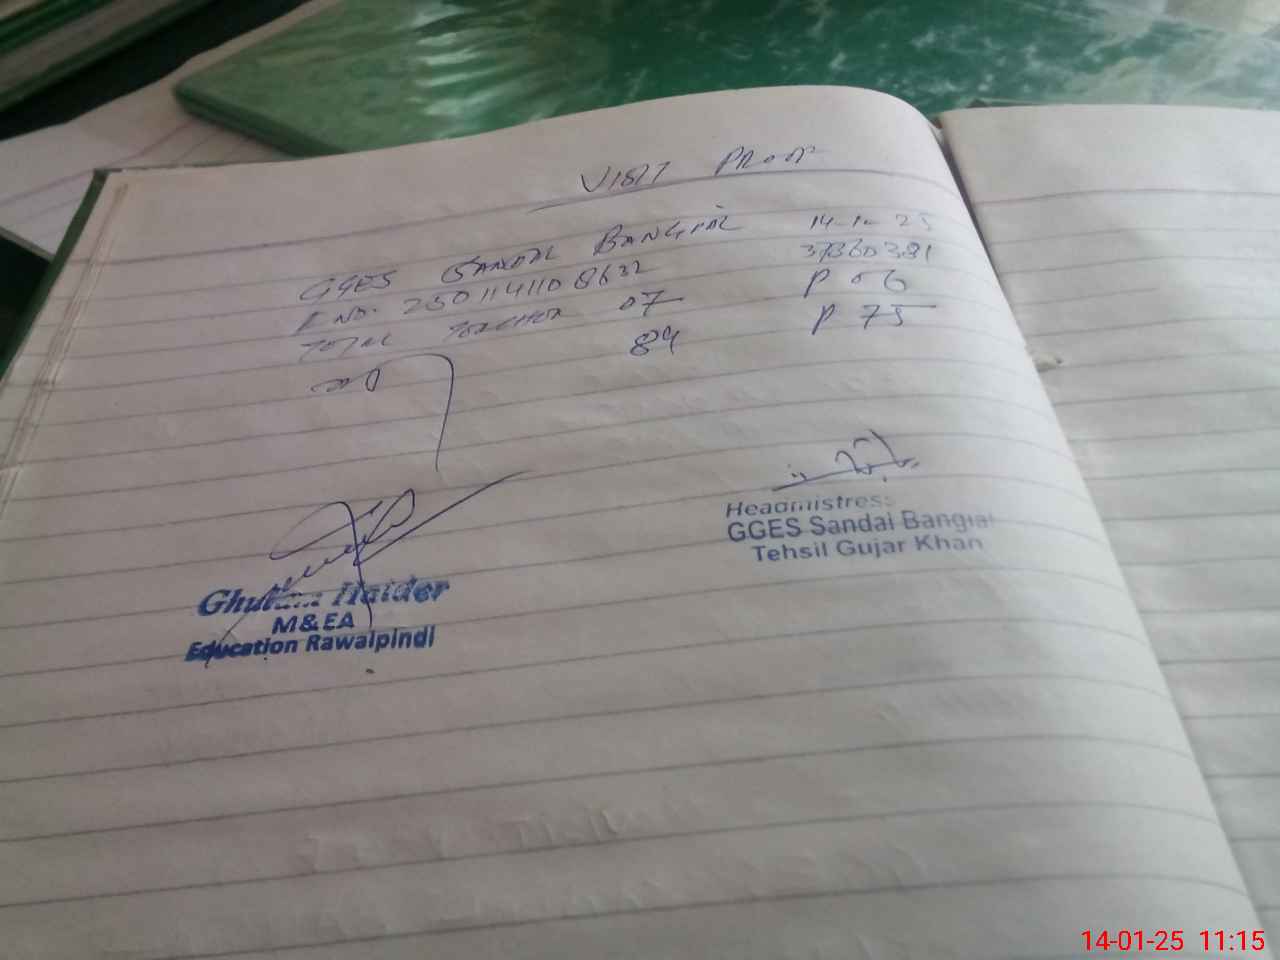 VISIT PROOF
GGES SANDAL BANGIAL 14-1-25
R NO. 2501141108632 37360381
TOTAL TEACHER 07 P 06
89 P 75
Headmistress
GGES Sandal Bangial
Tehsil Gujar Khan
Ghulam Haider
M&EA
Education Rawalpindi
14-01-25 11:15